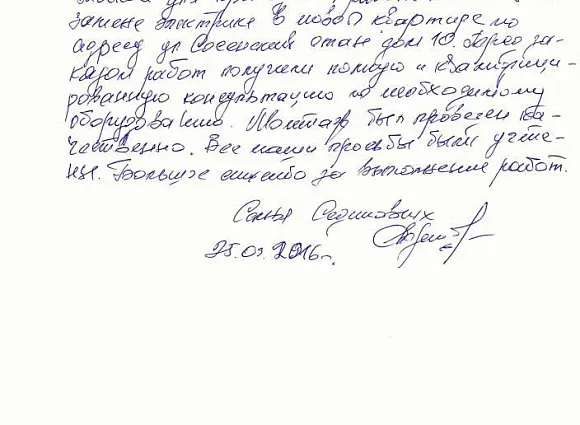 замене электрике в новой квартире по
адресу ул дом 10. Перед за-
казом работ получили полную и квалифици-
рованную консультацию по необходимому
оборудованию. Монтаж был проведен ка-
чественно. Все наши просьбы были учте-
ны. Большое спасибо за выполнение работ.
Семья
25.03.2016г.